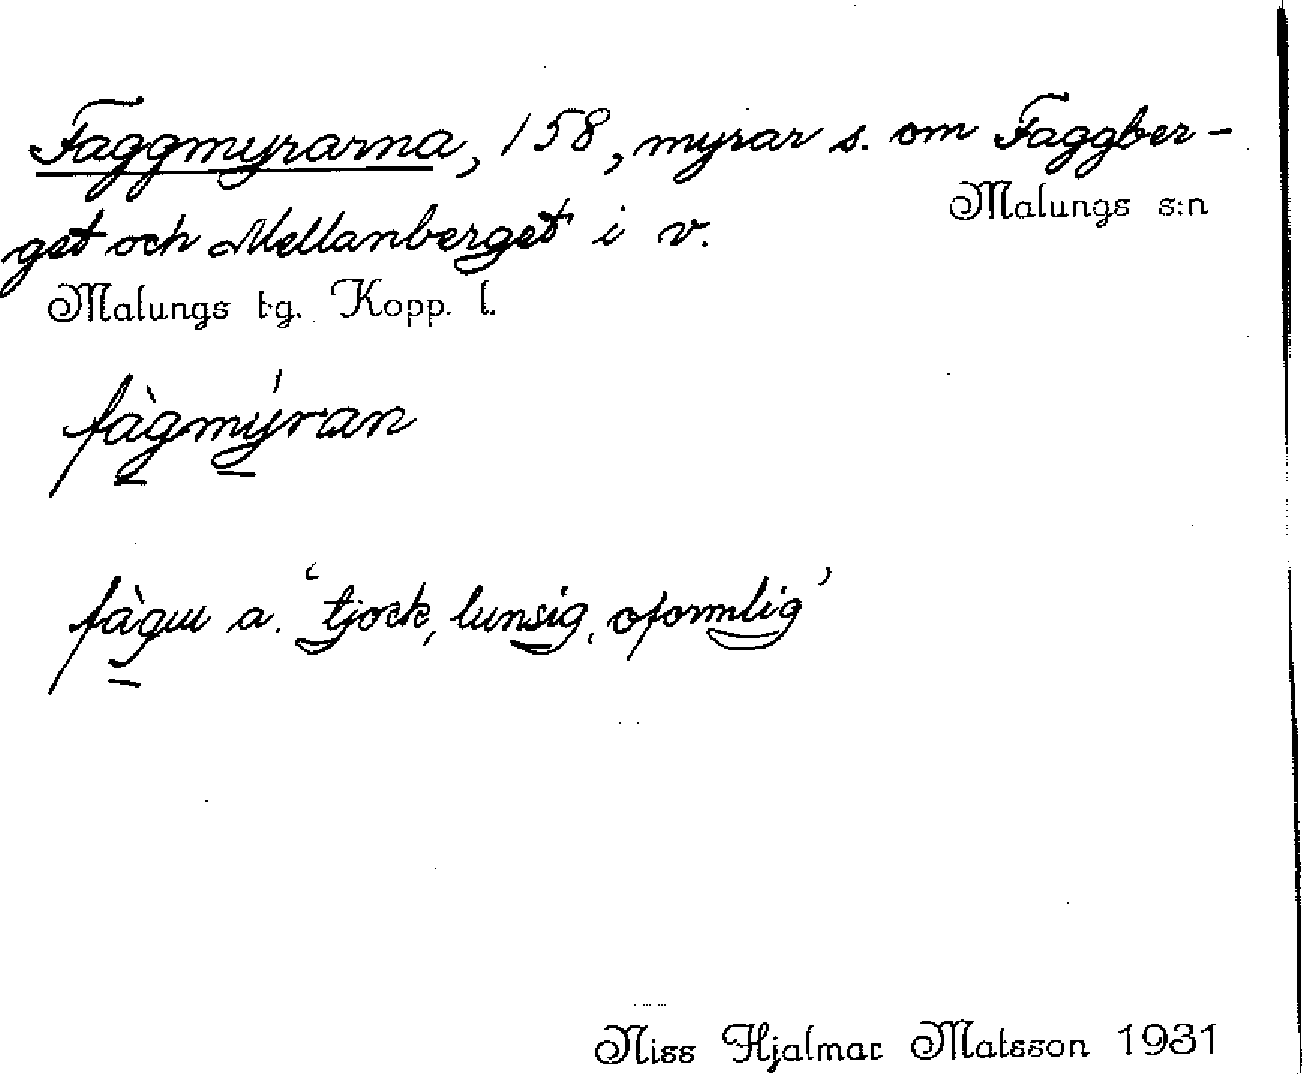 Faggmyrarna, 158, myrar s. om Faggber-
Malungs s:n
get och Mellanberget i v.
Malungs tg. Kopp. l.
fàgmýran
fàgɯ a. ‘tjock, lunsig, oformlig’
Niss Hjalmar Matsson 1931